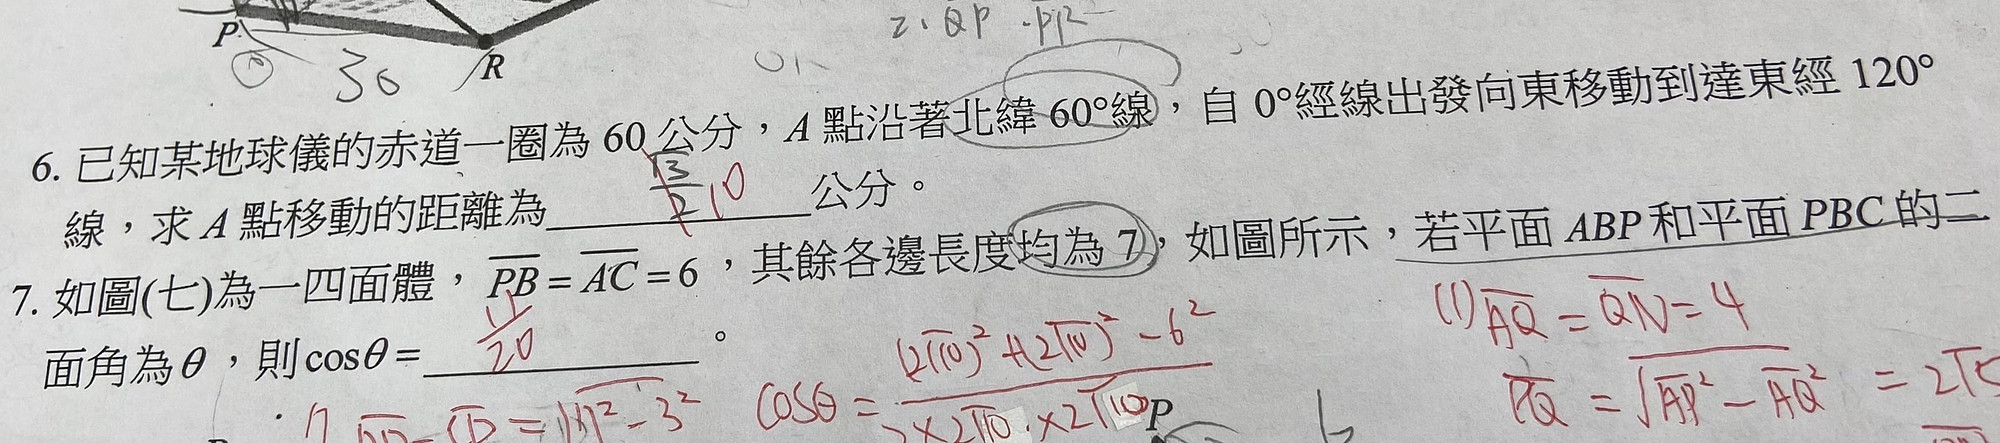 P
R
30
2. QP · PR
6. 已知某地球儀的赤道一圈為 60 公分，A 點沿著北緯 60°線，自 0°經線出發向東移動到達東經 120°
線，求 A 點移動的距離為 √3/2 10 公分。
7. 如圖(七)為一四面體，PB = AC = 6，其餘各邊長度均為 7，如圖所示，若平面 ABP 和平面 PBC 的二
面角為 θ，則 cosθ = 11/20 。
(1) AQ = QN = 4
PQ = √AP² − AQ² = 2√5
cosθ = (2√10)² + (2√10)² − 6² / 2 × 2√10 · × 2√10
P